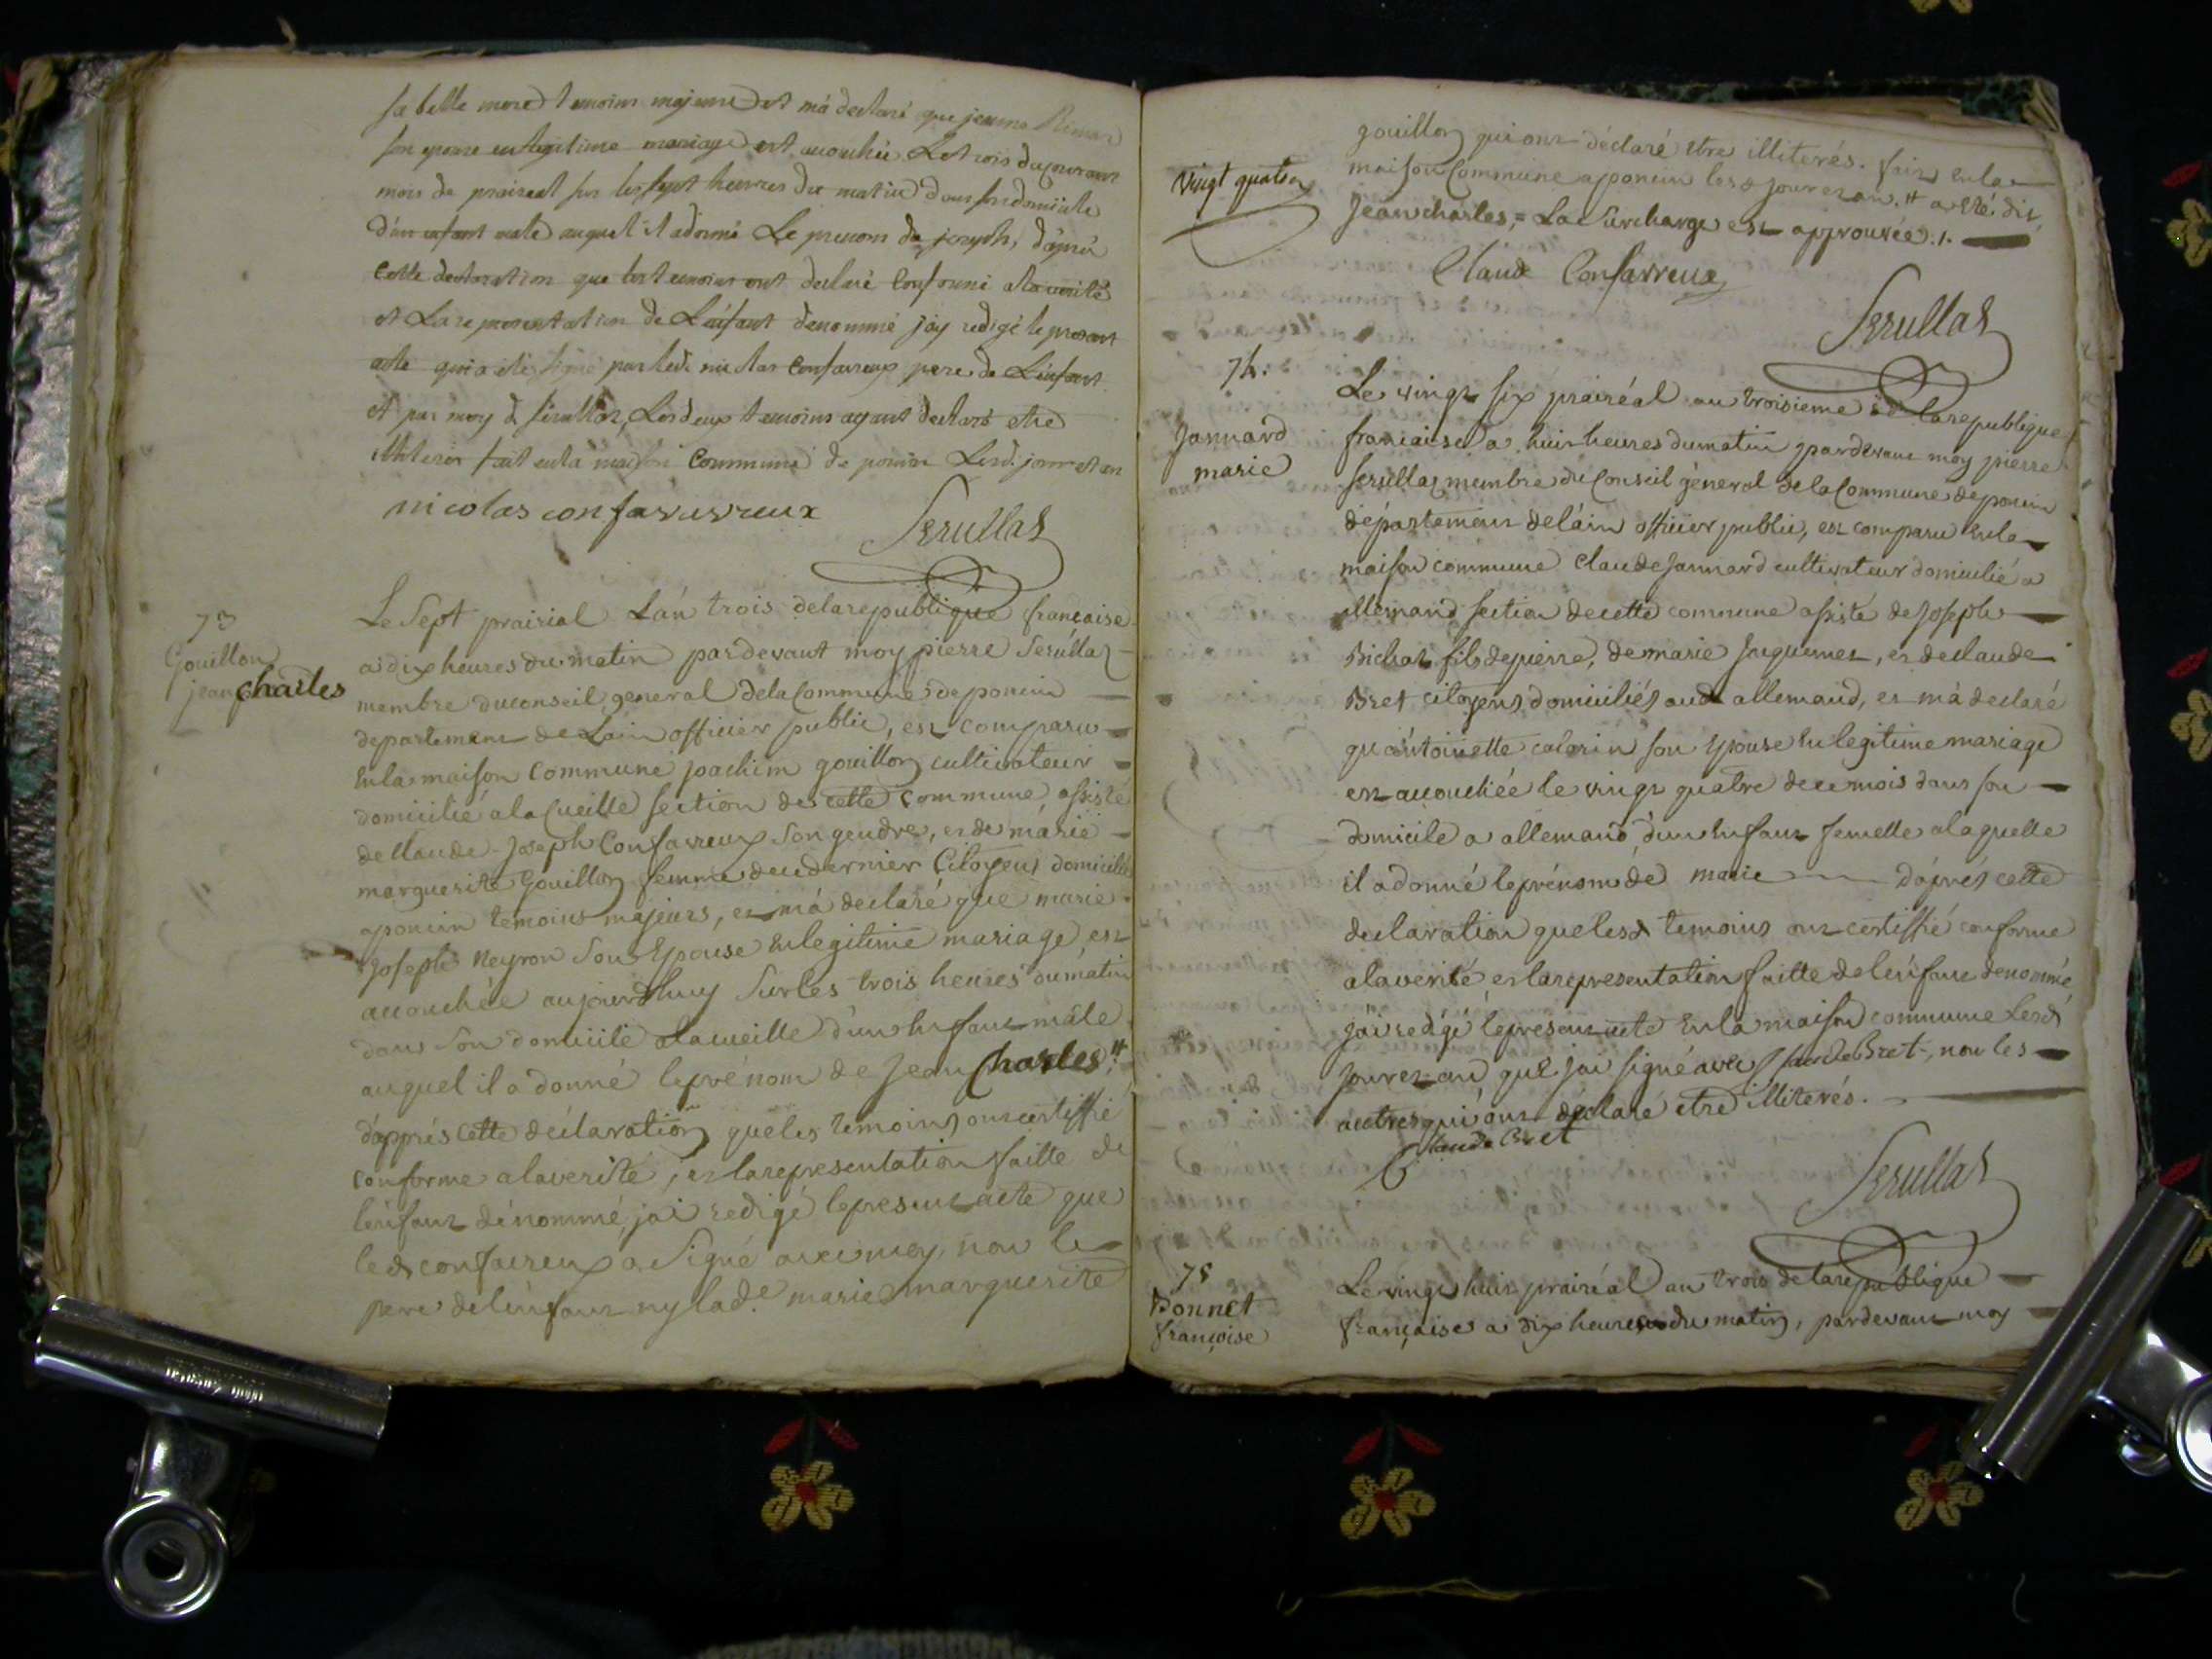 sa belle mere temoins majeurs et m'a declaré que jeanne
son epouse en legitime mariage est accouchée Le trois du courant
mois de praireal sur les sept heures du matin dans son domicile
d'un enfant male auquel il a donné Le prenom de joseph, d'aprés
cette declaration que les temoins ont declaré conforme a la verité
et La representation de L'enfant denommé j'ay redigé le present
acte qui a été signé par led. nicolas confavreux pere de L'enfant
et par moy d. serullaz, Les deux temoins ayant declaré etre
illiterés fait en la maison Commune de poncin Lesd. jour et an
nicolas confavuvreux
Serullaz
73
Gouillon
jean charles
Le Sept prairial L'an trois de la republique française
a dix heures du matin pardevant moy pierre Serullaz
membre du conseil general de la Commune de poncin
departement de L'ain officier public, est comparu
en la maison commune joachim gouillon cultivateur
domicilié a la Cueille section de cette commune, assisté
de Claude-joseph Confavreux son gendre, et de marie
marguerite Gouillon femme de ce dernier Citoyens domiciliés
a poncin temoins majeurs, et m'a declaré que marie
joseph Neyron Son Epouse en legitime mariage est
accouchée aujourdhuy Sur les trois heures du matin
dans Son domicile a la cueille d'un enfant mâle
auquel il a donné le prénom de Jean Charles #
d'apprés cette déclaration que les temoins ont certiffié
conforme a la verité, et la representation faitte de
l'enfant dénommé, j'ai redigé le present acte que
led. confavreux a Signé avec moy, non le
pere de l'enfant ny lad.e marie marguerite
vingt quatre
gouillon qui ont déclaré être illiterés. fait en la
maison Commune a poncin les d. jour et an. # a été dit
Jean charles, = La Surcharge est approuvée ./.
Claude Confavreux
Serullaz
74.
Jannard
marie
Le vingt six prairéal an troisieme de la republique
francaise a huit heures du matin pardevant moy pierre
serullaz membre du Conseil général de la Commune de poncin
département de l'ain officier public, est comparu en la
maison commune Claude Jannard cultivateur domicilié a
allemand section de cette commune assisté de Joseph
Bichat fils de pierre, de marie et de claude
Bret citoyens domiciliés aud. allemand, et m'a declaré
qu'antoinette son Epouse en legitime mariage
est accouchée le vingt quatre de ce mois dans son
domicile a allemand, d'un enfant femelle a laquelle
il a donné le prénom de marie d'aprés cette
declaration que les d. temoins ont certiffié conforme
a la verité, et la representation faitte de l'enfant denommé
j'ai redigé le present acte en la maison commune Lesd.
jour et an que j'ai signé avec Claude Bret, non les
autres qui ont déclaré etre illiterés.
Claude Bret
Serullaz
75
Bonnet
françoise
Le vingt huit prairéal an trois de la republique
française a dix heures du matin, pardevant moy